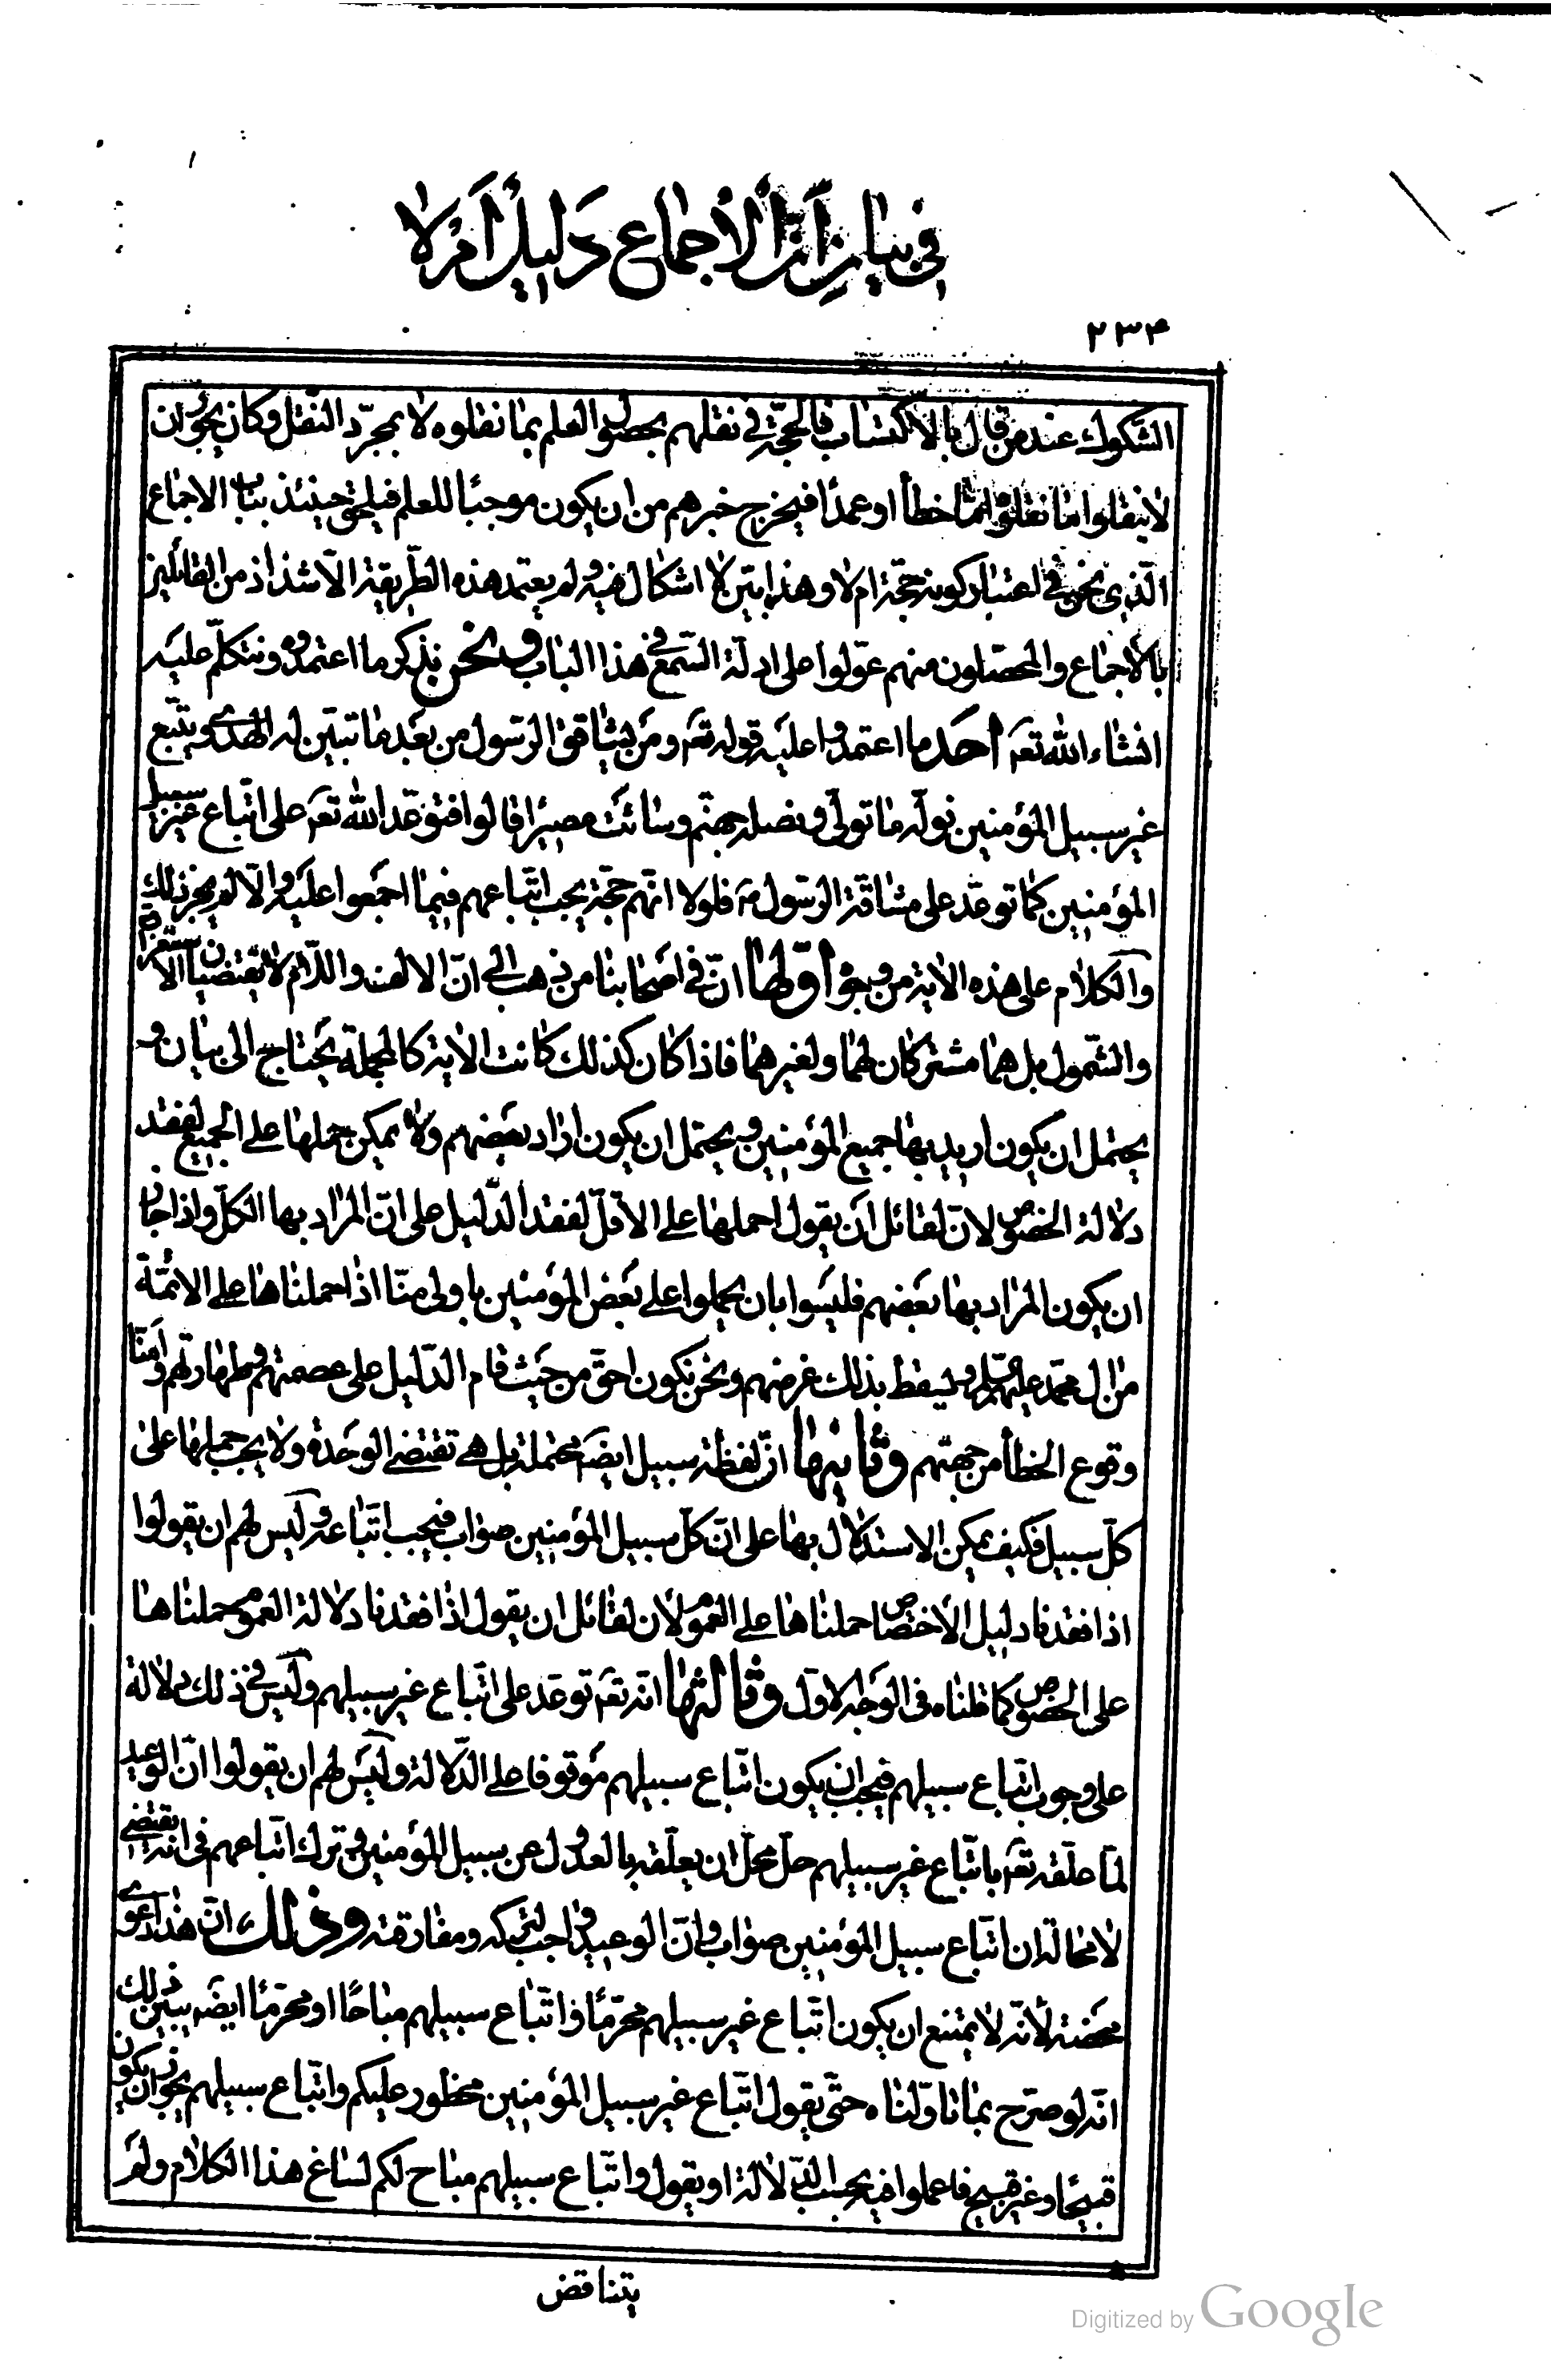 في بيان أنّ الاجماع دليل أم لا
٢٣٤
الشكوك عند من قال بالاكتساب فالحجّة في نقلهم بحصول العلم بما نقلوه لا بمجرّد النّقل وكان يجوز ان
لا ينقلوا ما نقلوه امّا خطأ او عمدًا فيخرج خبرهم من ان يكون موجبًا للعلم فيلحق حينئذ بباب الاجماع
الّذي نحن في اعتبار كونه حجّة ام لا وهذا بيّن لا اشكال فيه ولم يعتمد هذه الطّريقة الّا شذاذ من القائلين
بالاجماع والمحصّلون منهم عوّلوا على ادلّة السّمع في هذا الباب ونحن نذكر ما اعتمدوه ونتكلّم عليه
انشاء الله تعَ احد ما اعتمدوا عليه قوله تعَ ومن يشاقق الرّسول من بعد ما تبيّن له الهدى ويتّبع
غير سبيل المؤمنين نولّه ما تولّى ونصله جهنّم وسائت مصيرًا قالوا فتوعّد الله تعَ على اتّباع غير سبيل
المؤمنين كما توعّد على مشاقّة الرّسول صَ فلولا انّهم حجّة يجب اتّباعهم فيما اجمعوا عليه والّا لم يجز ذلك
والكلام على هذه الاية من وجوه اوّلها انّ في اصحابنا من ذهب الى انّ الالف واللّام لا يقتضيان الاستغراق
والشّمول بل هما مشتركان لهما ولغيرهما فاذا كان كذلك كانت الاية كالمجملة يحتاج الى بيان و
يحتمل ان يكون اريد بها جميع المؤمنين ويحتمل ان يكون اراد بعضهم ولا يمكن حملها على الجميع لفقد
دلالة الخصوص لانّ لقائل ان يقول احملها على الاقلّ لفقد الدّليل على انّ المراد بها الكلّ واذا جاز
ان يكون المراد بها بعضهم فليسوا بان يحملوا على بعض المؤمنين باولى منّا اذا حملناها على الائمّة
من ال محمّد عليهم السلم ويسقط بذلك غرضهم ونحن نكون احقّ من حيث قام الدّليل على عصمتهم وطهارتهم وامنّا
وقوع الخطأ من جهتهم وثانيها انّ لفظة سبيل ايضَ محتملة بل هي تقتضي الوحدة ولا يجب حملها على
كلّ سبيل فكيف يمكن الاستدلال بها على انّ كلّ سبيل المؤمنين صواب فيجب اتّباعه وليس لهم ان يقولوا
اذا فقدنا دليل الاختصاص حملناها على العموم لان لقائل ان يقول اذا فقدنا دلالة العموم حملناها
على الخصوص كما قلناه في الوجه الاول وثالثها انّه تعَ توعّد على اتّباع غير سبيلهم وليس في ذلك دلالة
على وجوب اتّباع سبيلهم فيجب ان يكون اتّباع سبيلهم موقوفا على الدّلالة وليس لهم ان يقولوا انّ الوعيد
لمّا علّقه تعَ باتّباع غير سبيلهم حلّ محلّ ان يعلّقه بالعدول عن سبيل المؤمنين وترك اتّباعهم في انّه يقتضي
لا محالة ان اتّباع سبيل المؤمنين صواب وانّ الوعيد واجب لتركه ومفارقته وذلك انّ هذا دعوى
محضة لأنّه لا يمتنع ان يكون اتّباع غير سبيلهم محرّمًا واتّباع سبيلهم مباحًا او محرّمًا ايضَ يبيّن ذلك
انّه لو صرّح بما تاوّلناه حتّى يقول اتّباع غير سبيل المؤمنين محظور عليكم واتّباع سبيلهم يجوز ان يكون
قبيحًا وغير قبيح فاعملوا فيه بحسب الدّلالة او يقول واتّباع سبيلهم مباح لكم لساغ هذا الكلام ولم
يتناقض
Digitized by Google